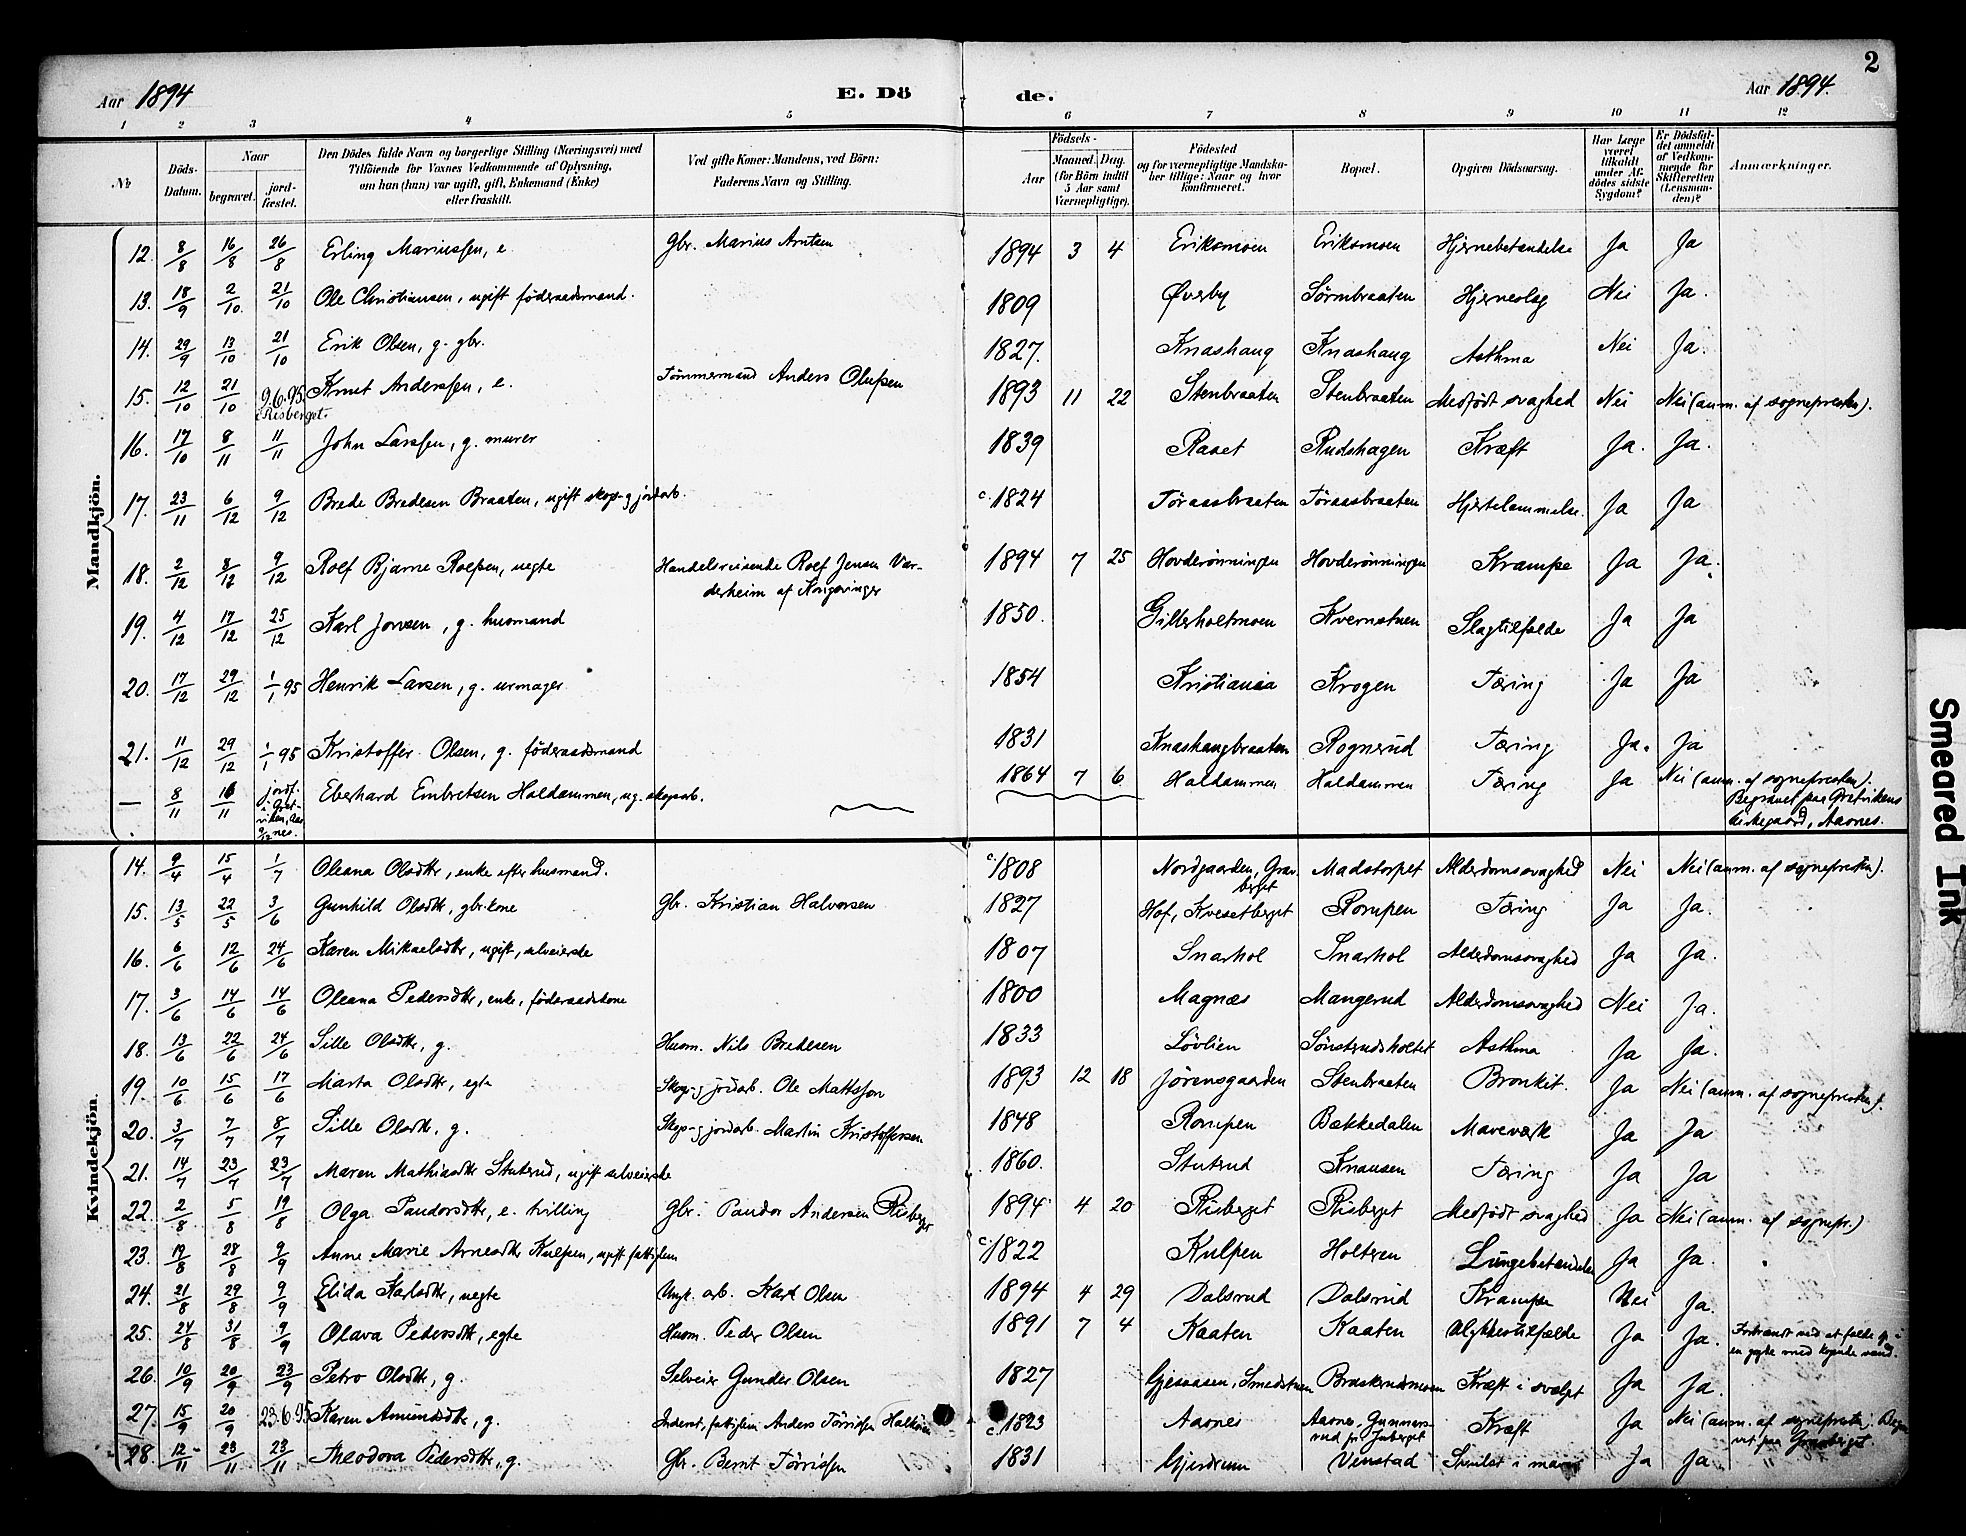 2
Aar 1894 E. Dö de. Aar 1894.
1 2 3 4 5 6 7 8 9 10 11 12
No
Döds-Datum.
Naar
begravet.
jord-fæstet.
Den Dödes fulde Navn og borgerlige Stilling (Næringsvei) med
Tilföiende for Voxnes Vedkommende af Oplysning,
om han (hun) var ugift, gift, Enkemand (Enke)
eller fraskilt.
Ved gifte Koner: Mandens, ved Börn:
Faderens Navn og Stilling.
Födsels-
Aar
Maaned. Dag.
(for Börn indtil
5 Aar samt
Værnepligtige).
Födested
og for værnepligtige Mandska-
ber tillige: Naar og hvor
konfirmeret.
Bopæl.
Opgiven Dödsaarsag.
Har Læge
været
tilkaldt
under Af-
dödes sidste
Sygdom?
Er Dödsfal-
det anmeldt
af Vedkom-
mende for
Skifteretten
(Lensman-
den)?
Anmærkninger.
Mandkjön.
12. 8/8 16/8 26/8 Erling Mariussen, e. Gbr. Marius Arntsen 1894 3 4 Eriksmoen Eriksmoen Hjernebetændelse Ja Ja
13. 18/9 2/10. 21/10 Ole Christiansen, ugift föderaadsmand. 1809 Øverby Sörmbraaten Hjerneslag Nei Ja.
14. 29/9 13/10 21/10 Erik Olsen, g. gbr. 1827. Knashaug Knashaug Asthma Nei Ja.
15. 12/10 21/10 9.6.95. i Risberget. Knut Anderssen, e. Tömmermand Anders Olufsen 1893 11 22 Stenbraaten Stenbraaten Medfödt svaghed Nei Nei (anm. af sognepresten).
16. 17/10 8/11 11/11 John Larssen, g. murer 1839 Raaet Rudshagen Kræft Ja. Ja.
17. 23/11 6/12 9/12 Brede Bredesen Braaten, ugift skogs- og jordarb. c. 1824 Töraasbraaten Töraasbraaten Hjertelammelse. Ja Ja
18. 2/12 8/12 9/12 Rolf Bjarne Rolfsen, uegte Handelsreisende Rolf Jensen Var-
derheim af Kongsvinger 1894 7 25 Hovderönningen Hovderönningen Krampe Ja Ja.
19. 4/12 17/12 25/12 Karl Jonsen, g. husmand 1850. Gillerholtmoen Kvernstuen Slagtilfælde Ja Ja
20. 17/12 29/12 1/1 95 Henrik Larsen, g. urmager 1854 Kristiania Krogen Tæring Ja Ja
21. 11/12 29/12 1/1 95 Kristoffer Olsen, g. föderaadsmand 1831 Knashaugbraaten Rognerud Tæring Ja. Ja
— 8/11 16/11 jordf. Eberhard Embretsen Haldammen, ug. skogsarb. 1864 7 6. Haldammen Haldammen Tæring Ja Nei (anm. af sognepresten).
Begravet paa Gretvikens
kirkegaard, Aasnes.
Kvindekjön.
14. 9/4 15/4 1/7 Oleana Olsdtr, enke efter husmand. c. 1808 Nordgaarden, Grav-
berget Madstorpet Alderdomssvaghed Nei Nei (anm. af sognepresten).
15. 13/5 22/5 3/6 Gunhild Olsdtr, gbr.kone Gbr. Kristian Halvorsen 1827 Hof, Kvesetberget Rompen Tæring Ja Ja.
16. 6/6 12/6 24/6 Karen Mikaelsdtr, ugift, selveierske 1807 Snarhol Snarhol Alderdomssvaghed Ja Ja.
17. 3/6 14/6 14/6 Oleana Pedersdtr, enke, föderaadskone 1800 Magnæs Mangerud Alderdomssvaghed Nei Ja.
18. 13/6 22/6 24/6 Sille Olsdtr, g. Husm. Nils Bredesen 1833 Lövlien Sönstrudsholtet Asthma Ja Ja.
19. 10/6 15/6 17/6 Marta Olsdtr, egte Skogs- og jordarb. Ole Mattsson 1893 12 18 Jörensgaarden Stenbraaten Bronkit. Ja Nei (anm. af sognepresten).
20. 3/7 7/7 8/7 Sille Olsdtr, g. Skogs- og jordarb. Martin Kristoffersen 1848 Rompen Bækkedalen Maveværk Ja Ja
21. 14/7 23/7 23/7 Maren Mathiasdtr Stutrud, ugift selveierske 1860. Stutrud Knausen Tæring Ja Ja
22. 2/8 5/8 19/8 Olga Pandorsdtr, e. tvilling Gbr. Pandor Andersen Risberget 1894 4 20 Risberget Risberget Medfödt svaghed Ja Nei (anm. af sognepr.)
23. 19/8 28/8 9/9 Anne Marie Arnesdtr Kulpen, ugift fattiglem c. 1822 Kulpen Holteen Lungebetændelse Ja Ja.
24. 21/8 29/8 9/9 Elida Karlsdtr, uegte Ungk. arb. Karl Olsen 1894 4 29 Dalsrud Dalsrud Krampe Nei Ja.
25. 24/8 31/8 9/9 Olava Pedersdtr, egte Husm. Peder Olsen 1891 7 4 Kaaten Kaaten Ulykkestilfælde Ja Ja. Forbrændt ved at falde i
en gryte med kogende vand.
26. 10/9 20/9 23/9 Petro Olsdtr, g. Selveier Gunder Olsen 1827 Gjesaasen, Smedstuen Braskerudmoen Kræft i svælget Ja Ja.
27. 15/9 20/9 23.6.95 Karen Amundsdtr, g. Inderst, fattiglem Anders Törrissen c. 1823 Aasnes Aasnes, Gunners-
rud Kræft Ja Nei (anm. af sognepresten). Begra-
vet paa Gravberget.
28. 12/11 23/11 23/11 Theodora Pedersdtr, g. Gbr. Bernt Törrissen 1831 Gjerdrum Venstad i maven Ja Ja.
Smeared Ink